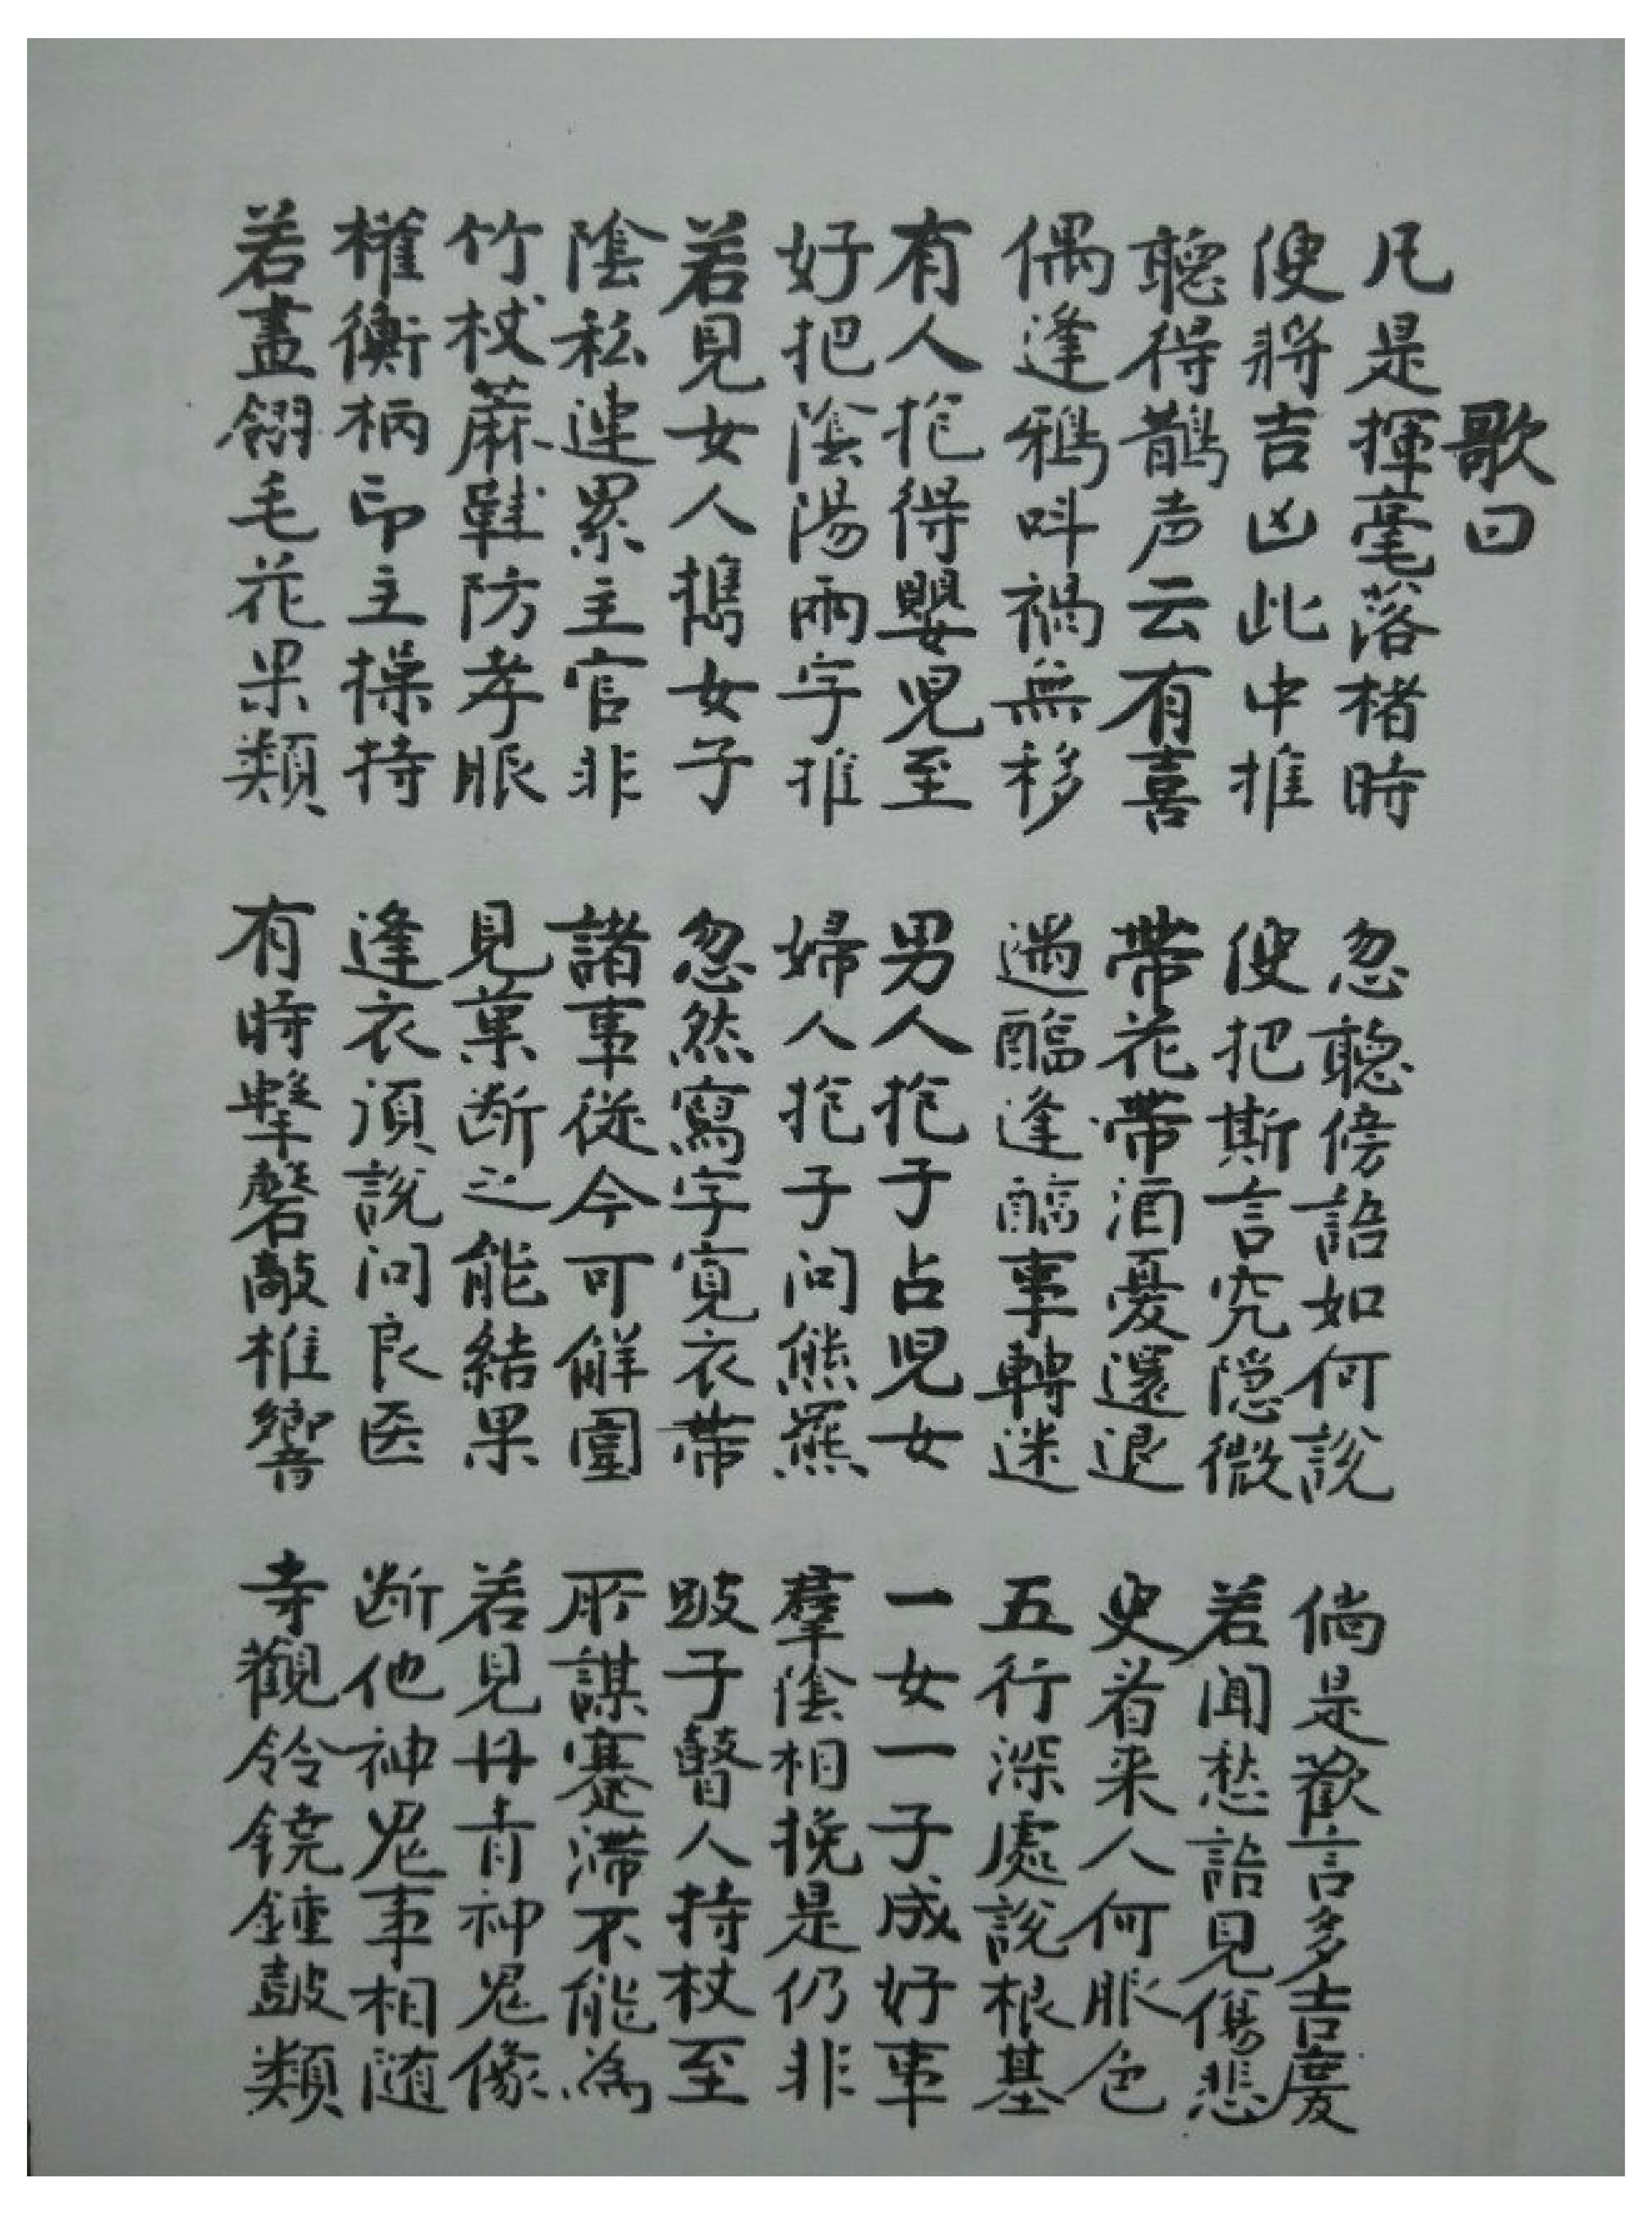 歌曰
凡是揮毫落楮時 忽聽傍語如何說 倘是歡言多吉慶
便將吉凶此中推 便把斯言究隐微 若闻愁語見傷悲
聽得鵲声云有喜 帶花帶酒憂還退 更看来人何服色
偶逢鴉叫禍無移 遇醢逢醯事轉迷 五行深處說根基
有人抱得嬰児至 男人抱子占児女 一女一子成好事
好把陰陽兩字推 婦人抱子问熊羆 羣陰相挽是仍非
若見女人携女子 忽然寫字寬衣帶 跛子瞽人持杖至
陰私連累主官非 諸事從今可解圍 所謀蹇滯不能為
竹杖蔴鞋防孝服 見菓断之能結果 若見丹青神鬼像
權衡柄印主操持 逢衣須說问良医 断他神鬼事相随
若畫翎毛花果類 有時擊磬敲椎響 寺觀鈴鐃鍾鼓類